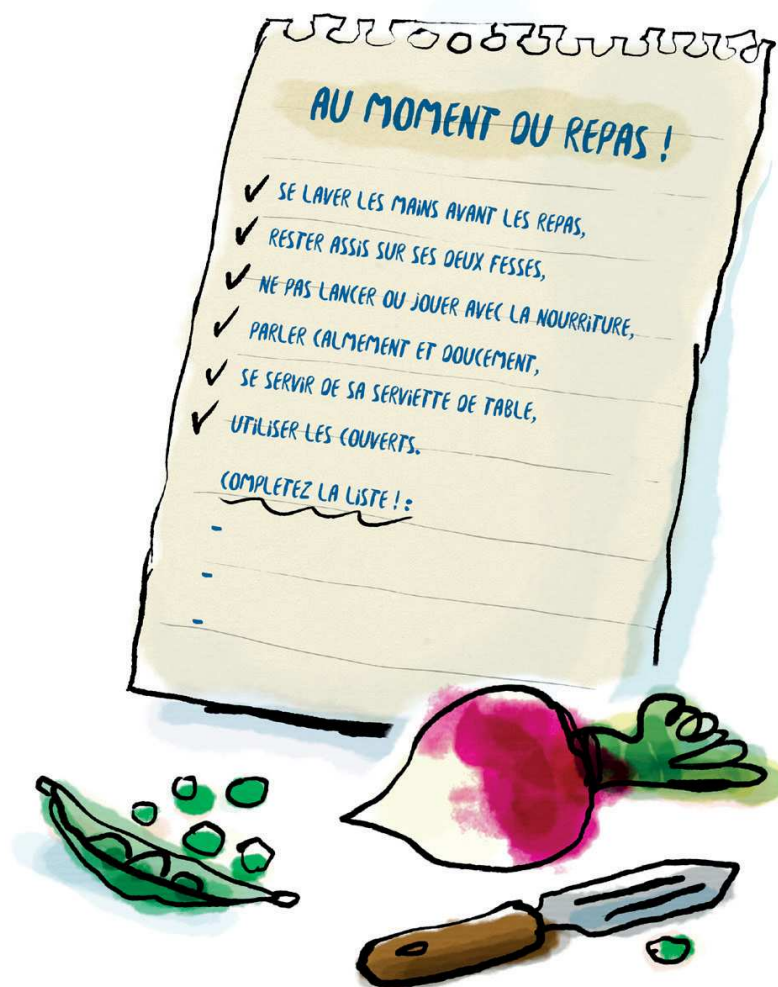 AU MOMENT DU REPAS !
✓ SE LAVER LES MAINS AVANT LES REPAS,
✓ RESTER ASSIS SUR SES DEUX FESSES,
✓ NE PAS LANCER OU JOUER AVEC LA NOURRITURE,
✓ PARLER CALMEMENT ET DOUCEMENT,
✓ SE SERVIR DE SA SERVIETTE DE TABLE,
✓ UTILISER LES COUVERTS.
COMPLETEZ LA LISTE ! :
-
-
-